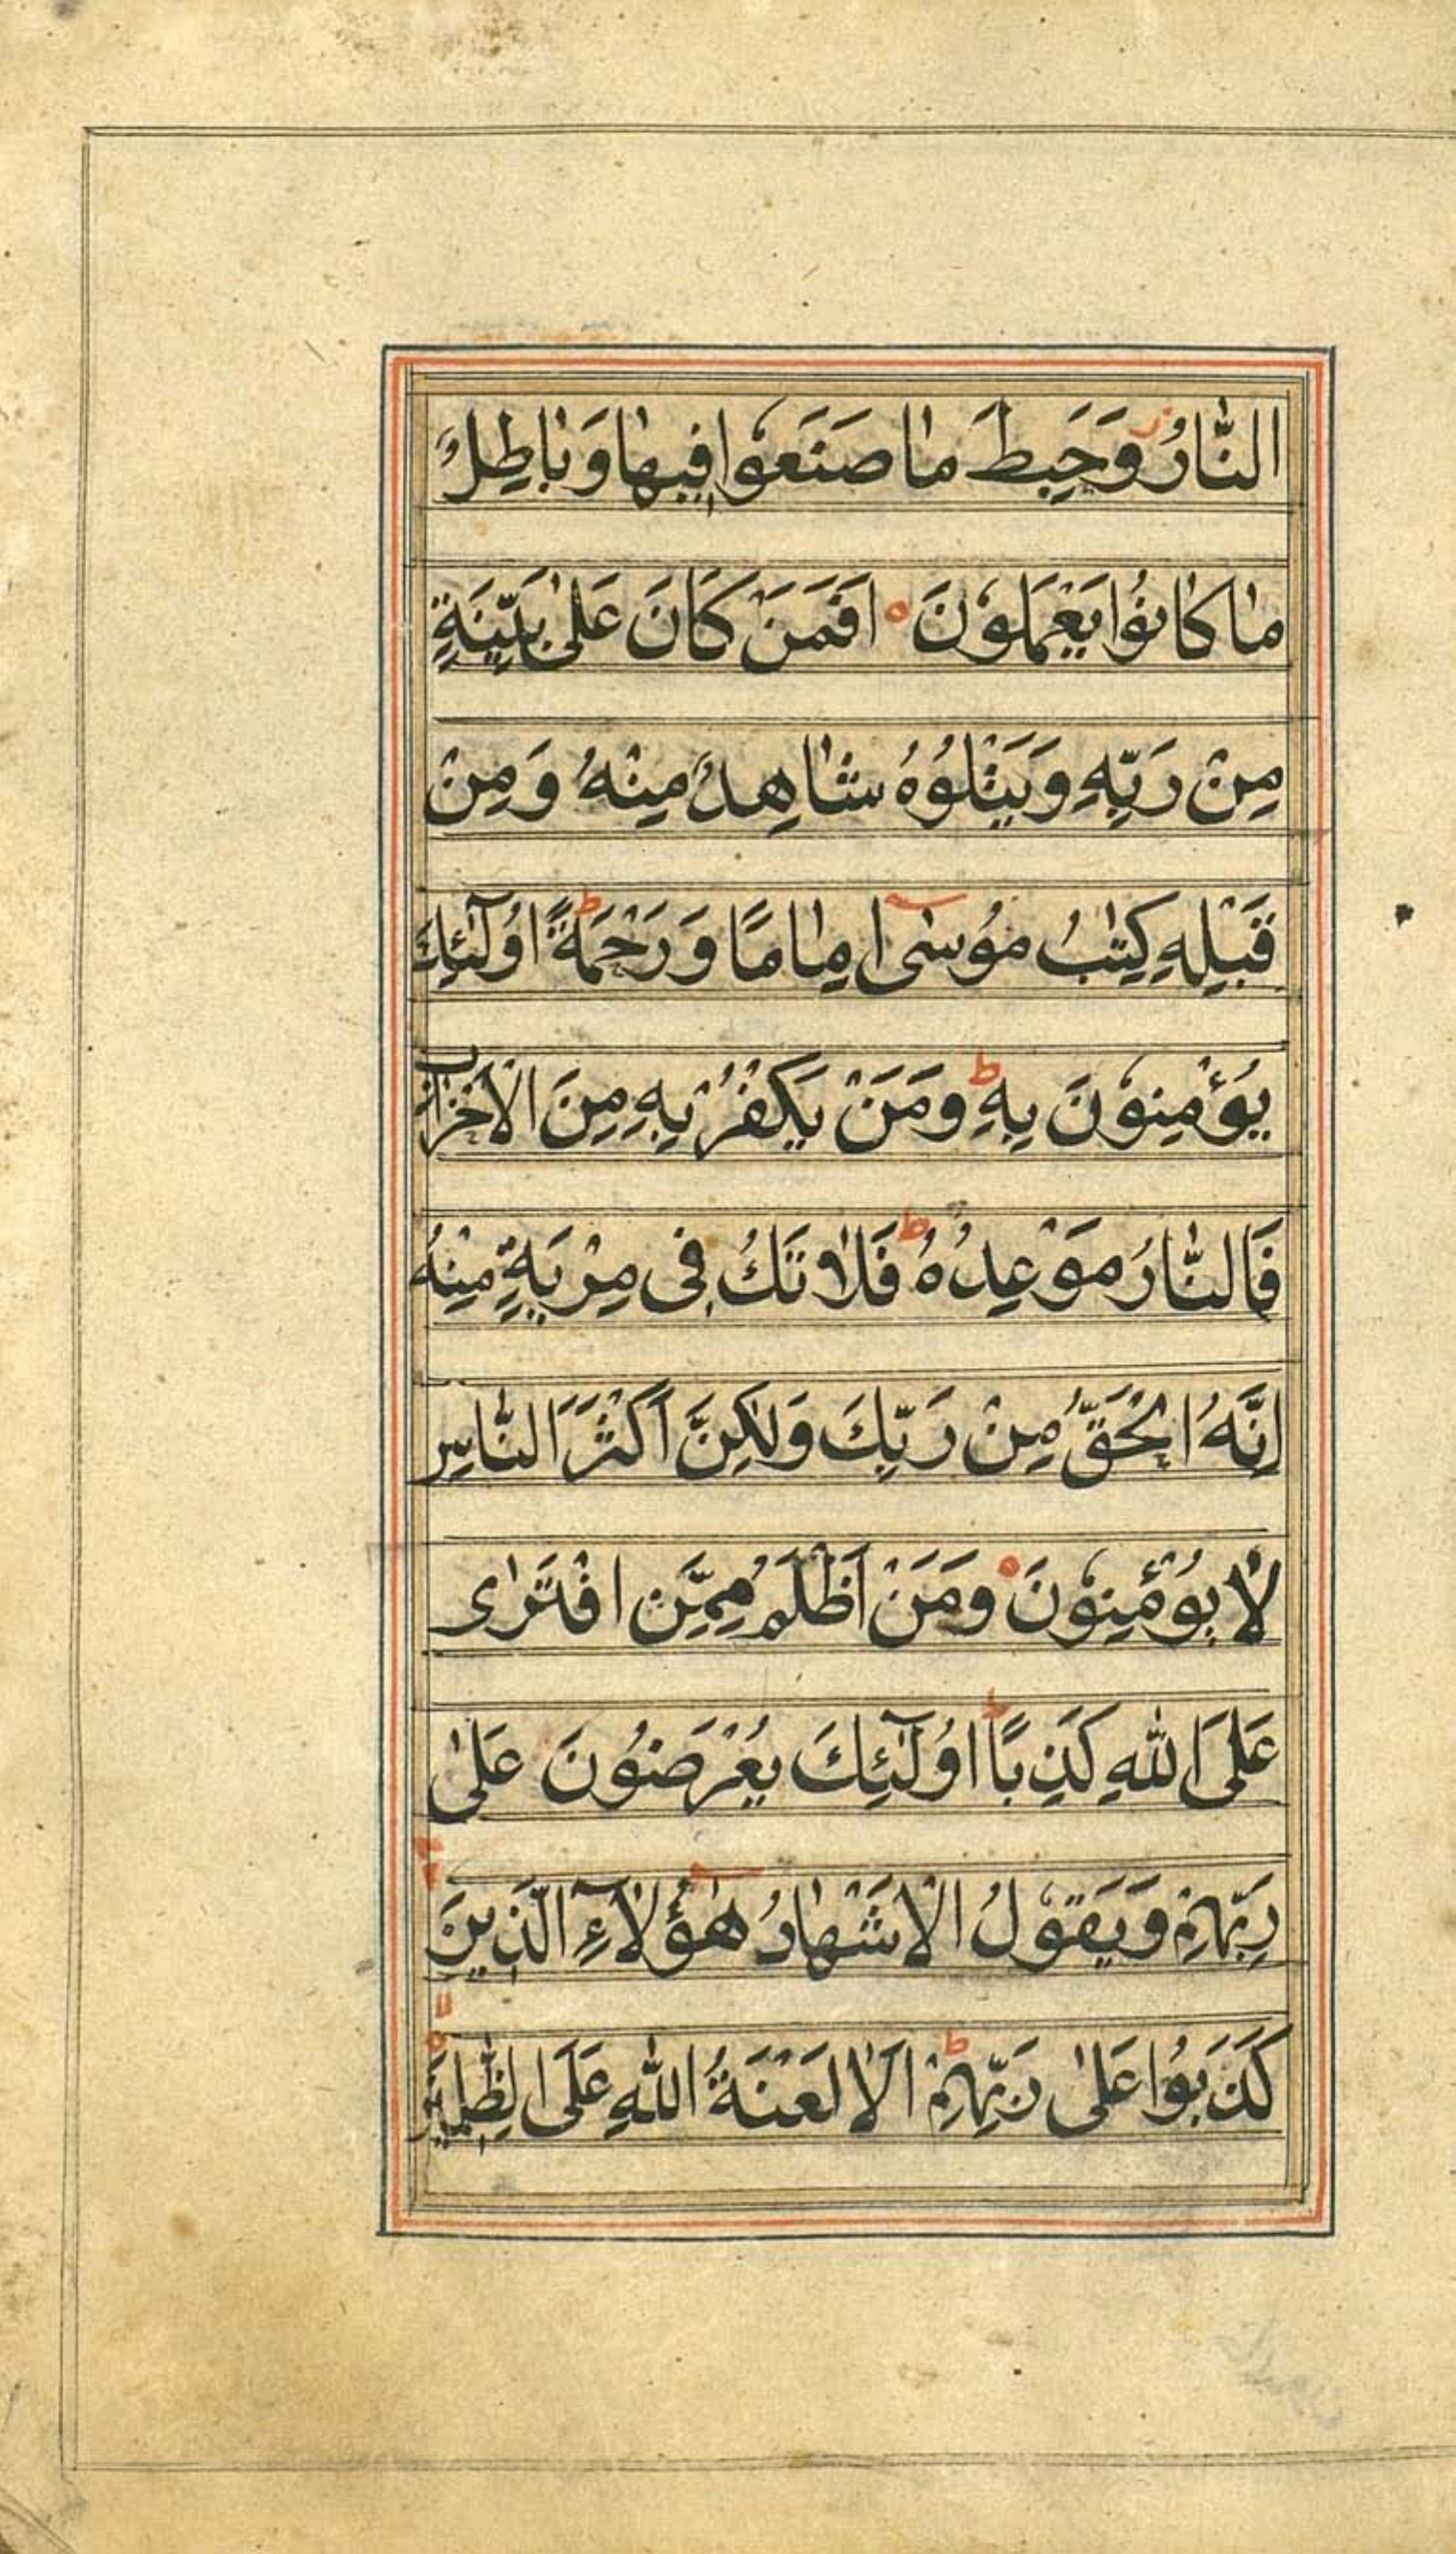 النَّارُ وَحَبِطَ مَا صَنَعُوا فِيهَا وَبَاطِلٌ
مَا كَانُوا يَعْمَلُونَ ه اَفَمَنْ كَانَ عَلٰى بَيِّنَةٍ
مِنْ رَبِّهِ وَيَتْلُوهُ شَاهِدٌ مِنْهُ وَمِنْ
قَبْلِهِ كِتٰبُ مُوسٰٓى اِمَامًا وَرَحْمَةً ط اُولٰٓئِكَ
يُؤْمِنُونَ بِهِ ط وَمَنْ يَكْفُرْ بِهِ مِنَ الْاَحْزَابِ
فَالنَّارُ مَوْعِدُهُ ط فَلَا تَكُ فِى مِرْيَةٍ مِنْهُ
اِنَّهُ الْحَقُّ مِنْ رَبِّكَ وَلٰكِنَّ اَكْثَرَ النَّاسِ
لَا يُؤْمِنُونَ ه وَمَنْ اَظْلَمُ مِمَّنِ افْتَرٰى
عَلَى اللّٰهِ كَذِبًا ط اُولٰٓئِكَ يُعْرَضُونَ عَلٰى
رَبِّهِمْ وَيَقُولُ الْاَشْهَادُ هٰٓؤُلَآءِ الَّذِينَ
كَذَبُوا عَلٰى رَبِّهِمْ ط اَلَا لَعْنَةُ اللّٰهِ عَلَى الظّٰلِمِينَ